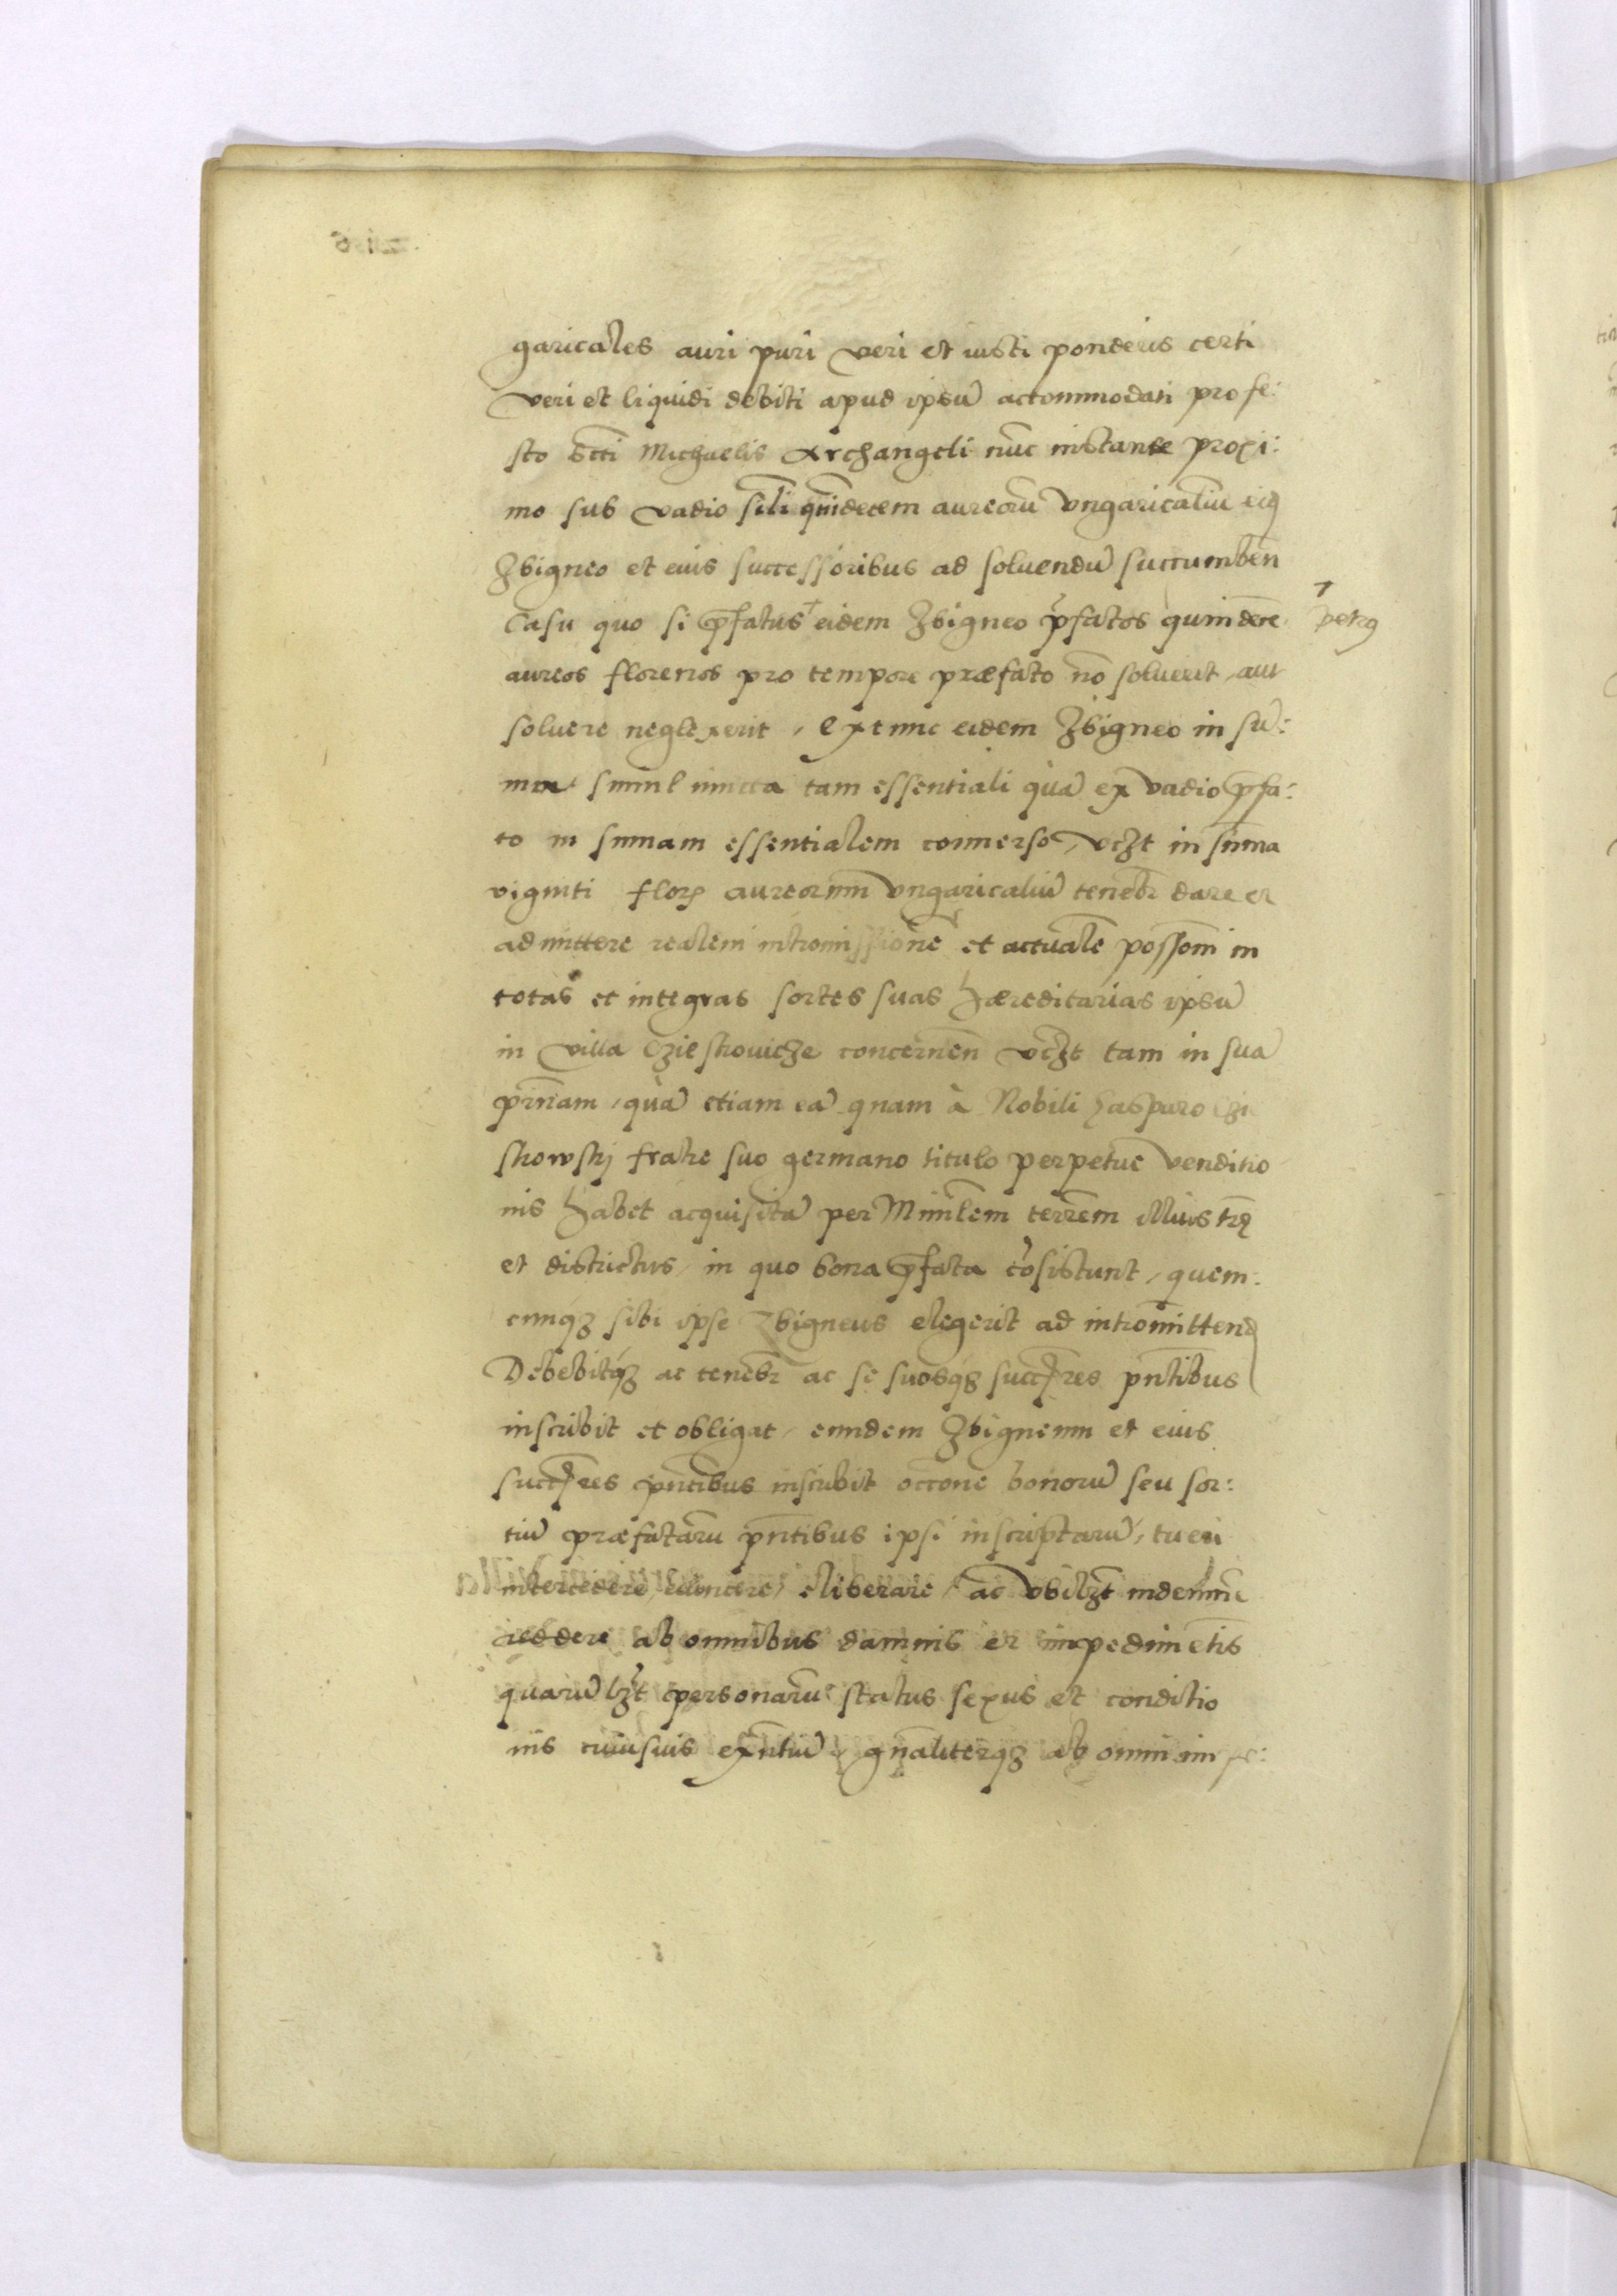 garicales auri puri veri et iusti ponderis certi
veri et liquidi debiti apud ipsū accommodati pro fe:
sto Scti Michaelis Archangeli nūc instante proxi:
mo sub vadio sīli quīdecem aureorū vngaricaliū
Zbigneo et eius successoribus ad soluendū succumben̄
Casu quo si p̄fatus ⸆ eidem Zbigneo p̄fatos quindecē
⸆ Petrꝰ
aureos florenos pro tempore præfato nō soluerit, aut
soluere neglexerit, extunc eidem Zbigneo in sū:
ma simul iuncta tam essentiali quā ex vadio p̄fa:
to in sūmam essentialem conuerso, vcꝫt in sūma
viginti floꝝ aureorum vngaricaliū teneb̄r dare et
admittere realem intromissionē et actualē possom̄ in
totas et integras sortes suas hæreditarias ipsū
in villa Cziestrouicze concernen̄ vcꝫt tam in suā
pr̄nam, quā etiam eā quam à Nobili Casparo
strowskj fratre suo germano titulo perpetuę venditio
nis habet acquisitā per Minrl̄em terrēm illius trę
et districtus, in quo bona p̄fata cōsistunt, quem:
cunqꝫ sibi ipse Zbigneus elegerit ad intromittend
Debebitqꝫ ac teneb̄r ac se suosqꝫ succr̄es pn̄tibus
inscribit et obligat, eundem Zbigneum et eius
succr̄es pn̄tibus inscribit occōne bonorū seu sor:
tiū præfatarū pn̄tibus ipsi inscriptarū, tueri
intercedere, euincere, eliberare, ac vbilꝫt indemnē
reddere ab omnibus damnis et impedimētis
quarūlꝫt personarū status sexus et conditio
nis cuiusuis exn̄tiū, gn̄aliterqꝫ ab omni impe: